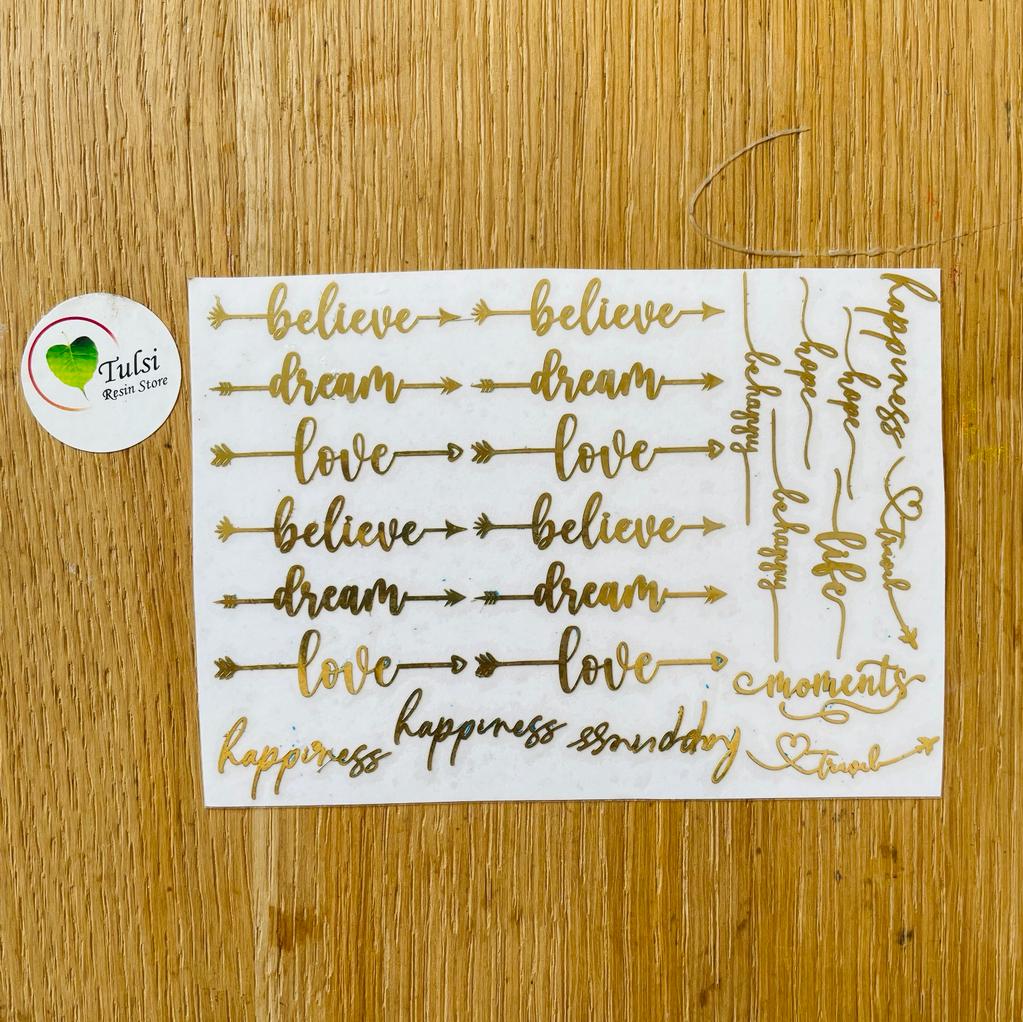 Tulsi
Resin Store
believe believe
dream dream
love love
believe believe
dream dream
love love
happiness happiness happiness
behappy
behappy
hope
hope
life
happiness
travel
moments
travel